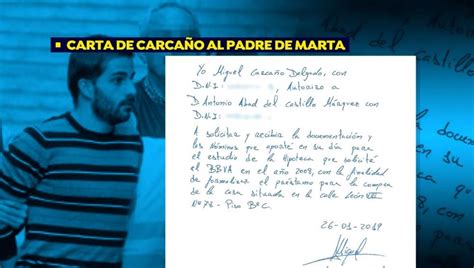 CARTA DE CARCAÑO AL PADRE DE MARTA
Yo Miguel Carcaño Delgado, con
D.N.I: Autorizo a
D Antonio Abad del Castillo Márquez con
D.N.I:
A solicitar y recibir la documentación y
las nóminas que aporté en su día para
el estudio de la Hipoteca que solicité
el BBVA en el año 2008, con la finalidad
de formalizar el préstamo para la compra
de la casa situada en la calle León XIII
Nº 78 - Piso BºC.
26-01-2019
Miguel